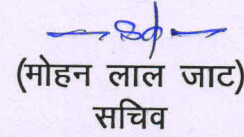 (मोहन लाल जाट)
सचिव